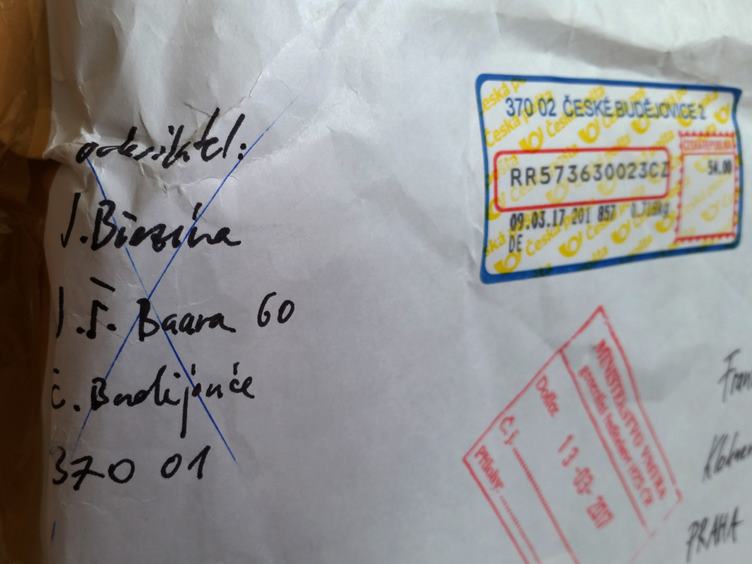 odesílatel:
J. Březina
J. Š. Baara 60
Č. Budějovice
370 01
370 02 ČESKÉ BUDĚJOVICE 2
RR573630023CZ
ČESKÁ REPUBLIKA
54.00
09.03.17 201 857 0.718kg
DE
Česká pošta
MINISTERSTVO VNITRA
generální ředitelství HZS ČR
Došlo:
13-03-2017
Č.j.
Přílohy:
Fran
PRAHA